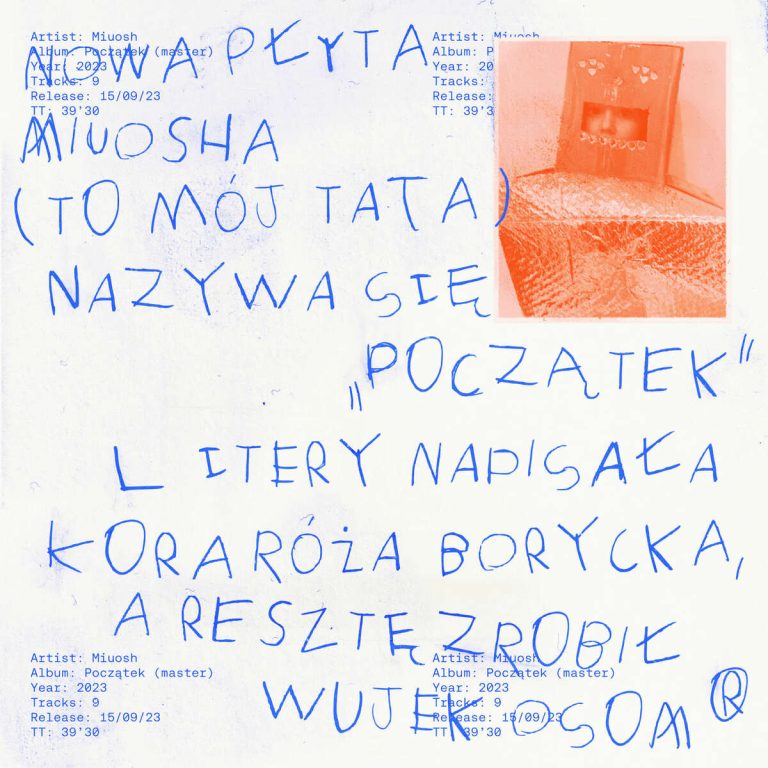 Artist: Miuosh
Album: Początek (master)
Year: 2023
Tracks: 9
Release: 15/09/23
TT: 39'30
Artist: Miuosh
Album: P
Year: 20
Tracks:
Release:
TT: 39'3
NOWA PŁYTA
MIUOSHA
(TO MÓJ TATA)
NAZYWA SIĘ
„POCZĄTEK"
LITERY NAPISAŁA
KORA RÓŻA BORYCKA,
A RESZTĘ ZROBIŁ
WUJEK OSOM ®
Artist: Miuosh
Album: Początek (master)
Year: 2023
Tracks: 9
Release: 15/09/23
TT: 39'30
Artist: Miuosh
Album: Początek (master)
Year: 2023
Tracks: 9
Release: 15/09/23
TT: 39'30